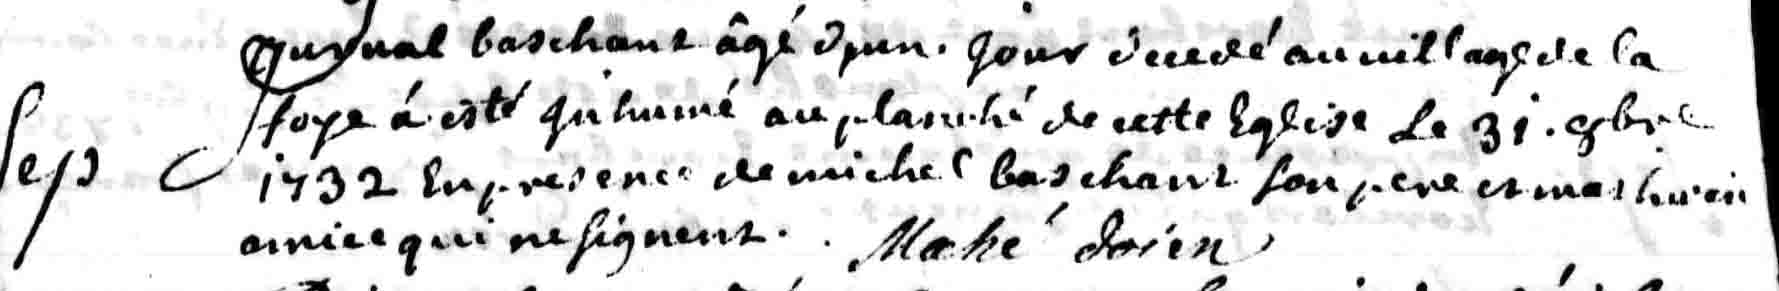 baschant âgé d'un jour decedé au village de la
foye á esté jnhumé au planché de cette Eglise Le 31. 8bre
Sep
1732 En presence de michel baschant son pere et mathurin
amice qui ne signent. Mahé doien